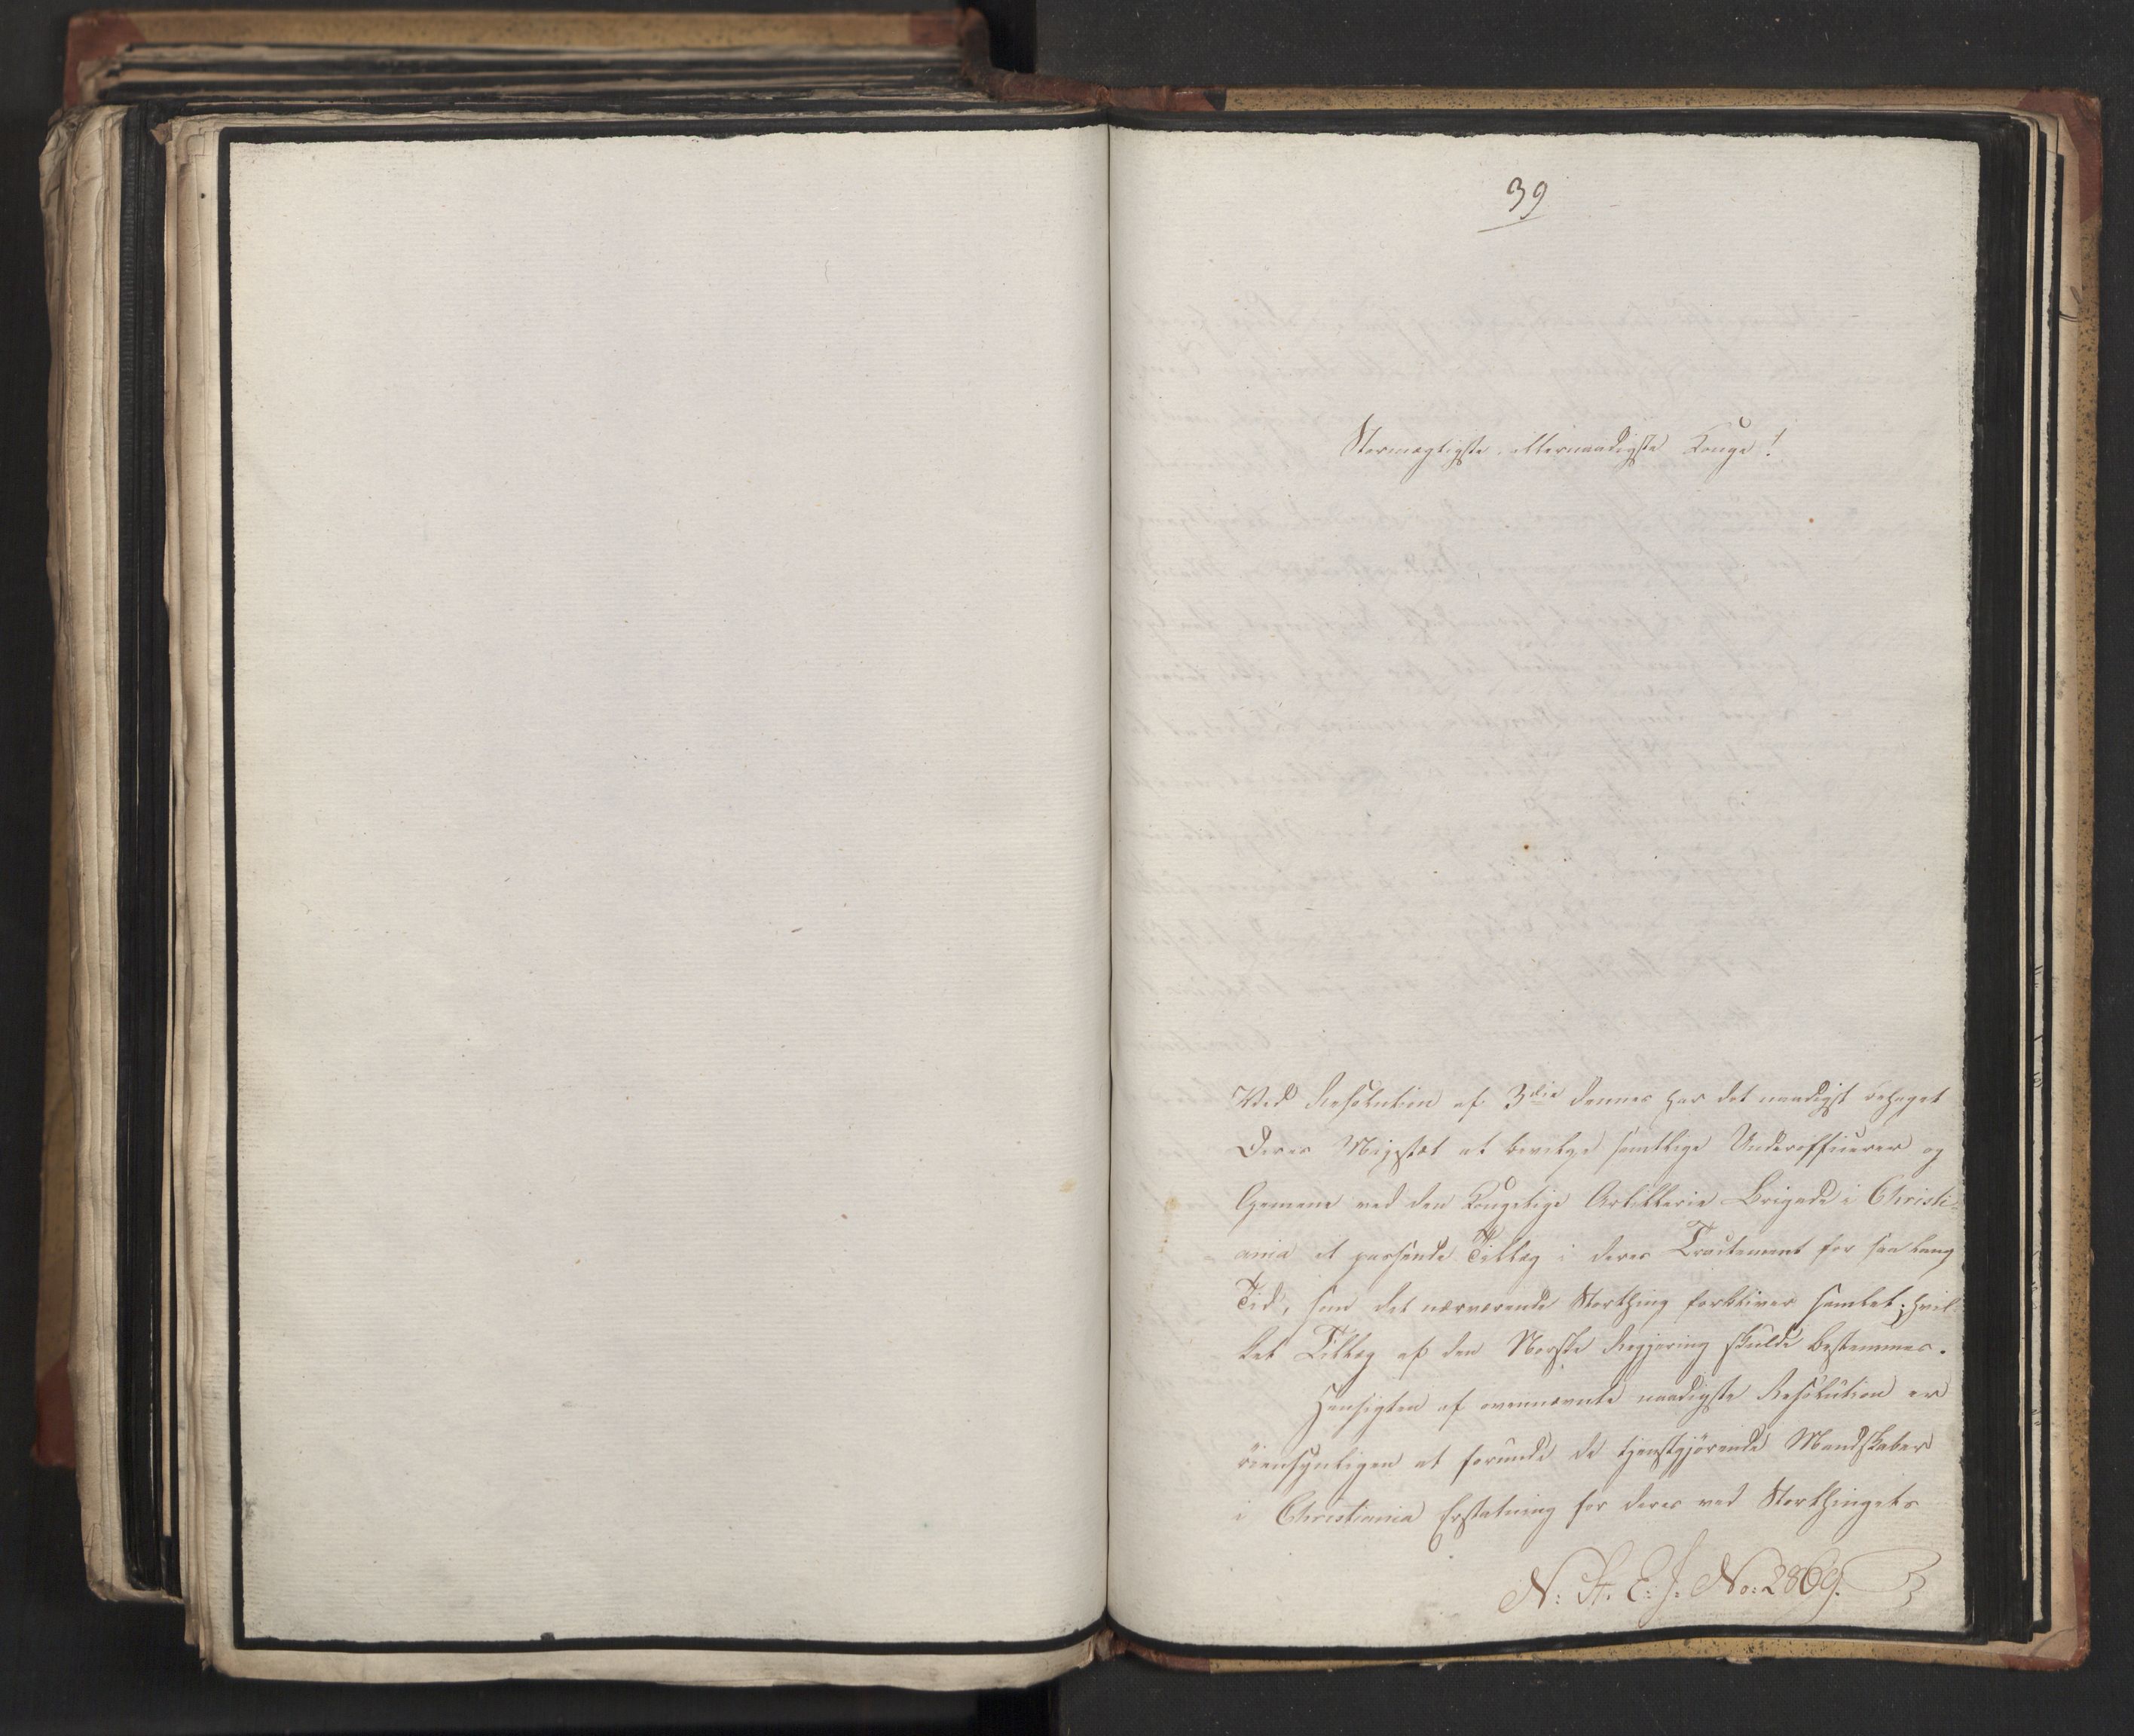 39
Stormægtigste, allernaadigste Konge!
Ved Resolution af 3die dennes har det naadigst behaget
Deres Majestæt at bevilge samtlige Underofficerer og
Gemene ved den Kongelige Artillerie Brigade i Christi-
ania et passende Tillæg i deres Tractement for saa lang
Tid, som det nærværende Storthing forbliver samlet; hvil-
ket Tillæg af den Norske Regjering skulde bestemmes.
Hensigten af ovennævnte naadigste Resolution er
öiensynligen at forunde de tjenstgjörende Mandskaber
i Christiania Erstatning for deres ved Storthingets
N: St. E: J: No: 2869.